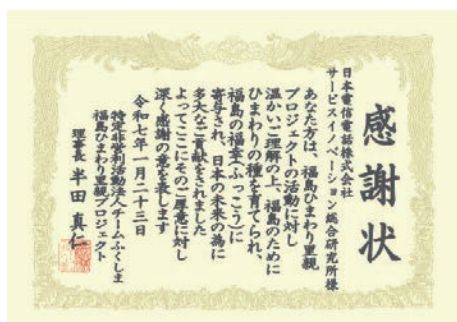 感謝状
日本電信電話株式会社
サービスイノベーション総合研究所様
あなた方は、福島ひまわり里親
プロジェクトの活動に対し
温かいご理解の上、福島のために
ひまわりの種を育てられ、
福島の福幸(ふっこう)に
寄与され、日本の未来の為に
多大なご貢献をされました
よってここにそのご厚意に対し
深く感謝の意を表します
令和七年一月二十三日
特定非営利活動法人チームふくしま
福島ひまわり里親プロジェクト
理事長 半田 真仁